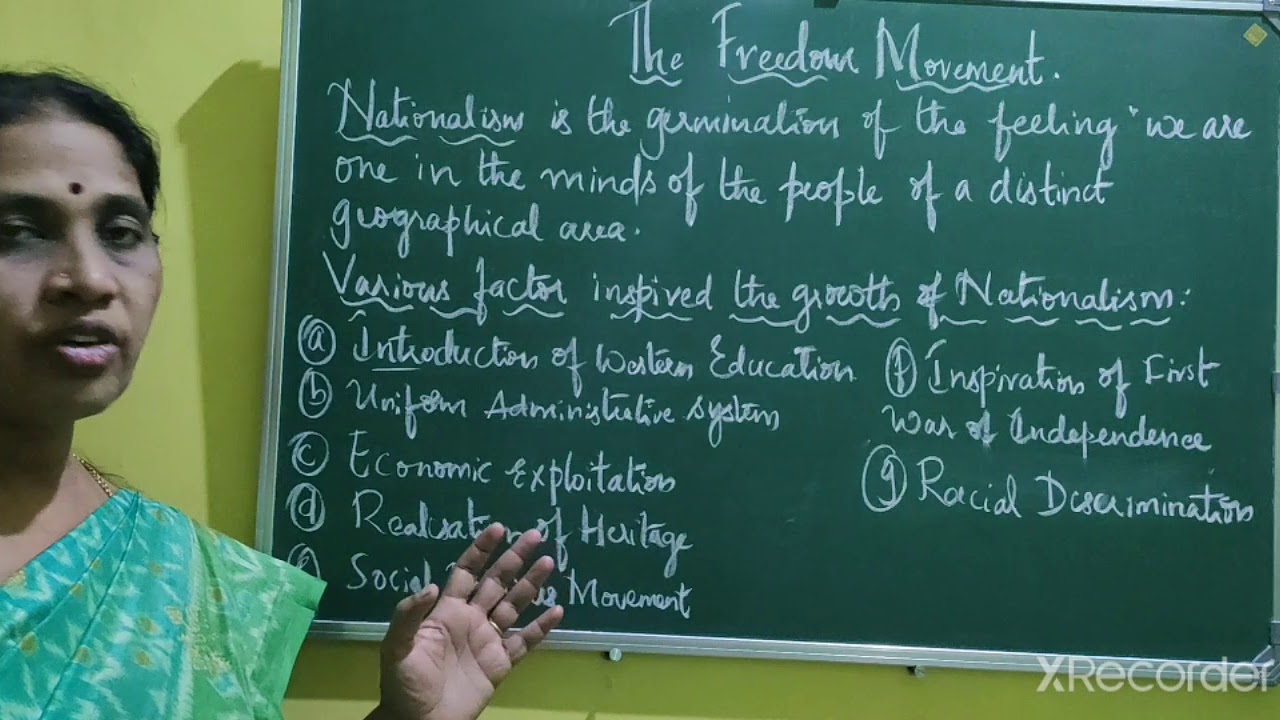 The Freedom Movement.
Nationalism is the germination of the feeling "we are
one in the minds of the people of a distinct
geographical area.
Various factor inspired the growth of Nationalism:
(a) Introduction of Western Education
(b) Uniform Administrative system
(c) Economic Exploitation
(d) Realisation of Heritage
Social Movement
(f) Inspiration of First
War of Independence
(g) Racial Discrimination
XRecorder